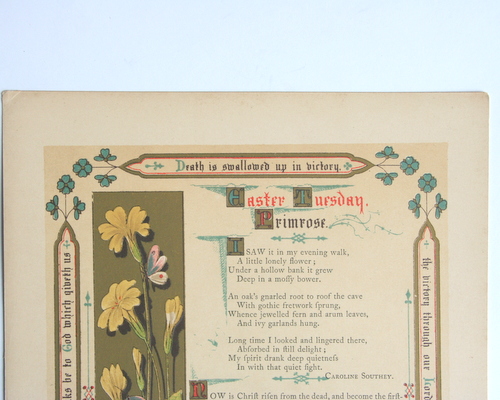 Death is swallowed up in victory.
Easter Tuesday.
Primrose.
I SAW it in my evening walk,
A little lonely flower;
Under a hollow bank it grew
Deep in a mossy bower.
An oak's gnarled root to roof the cave
With gothic fretwork sprung,
Whence jewelled fern and arum leaves,
And ivy garlands hung.
Long time I looked and lingered there,
Absorbed in still delight;
My spirit drank deep quietness
In with that quiet sight.
CAROLINE SOUTHEY.
NOW is Christ risen from the dead, and become the first-
ks be to God which giveth us
the victory through our Lord